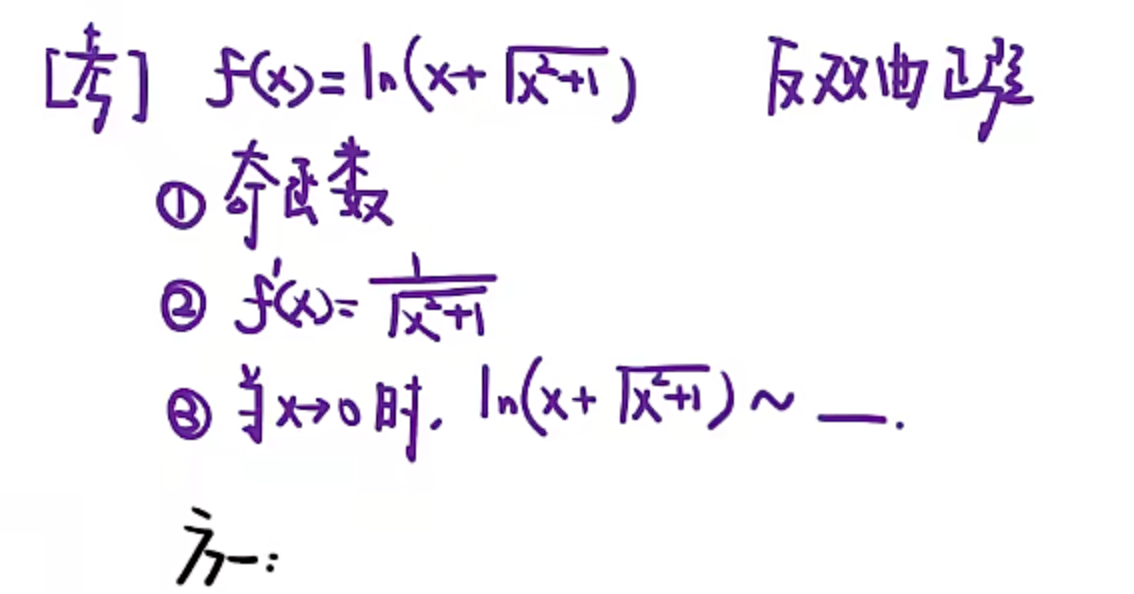 [考] f(x)=ln(x+√(x²+1)) 反双曲正弦
① 奇函数
② f'(x)=1/√(x²+1)
③ 当x→0时, ln(x+√(x²+1)) ~ __.
方一: